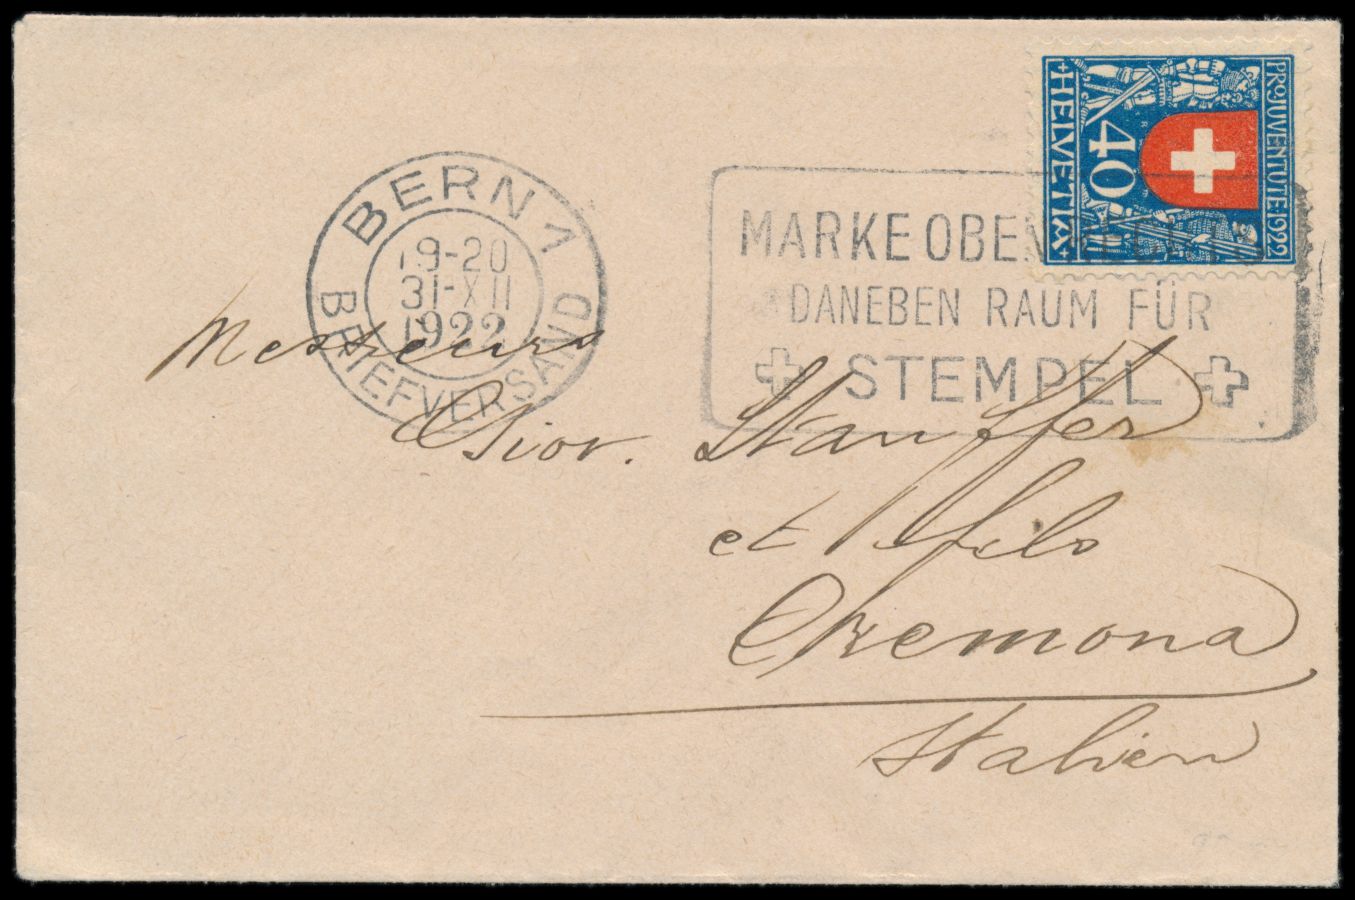 PRO JUVENTUTE·1922
40
HELVETIA
BERN 1
19-20
31-XII
1922
BRIEFVERSAND
MARKE OBEN RECHTS
DANEBEN RAUM FÜR
STEMPEL
Messieurs
Giov. Stauffer
et fils
Cremona
Italien